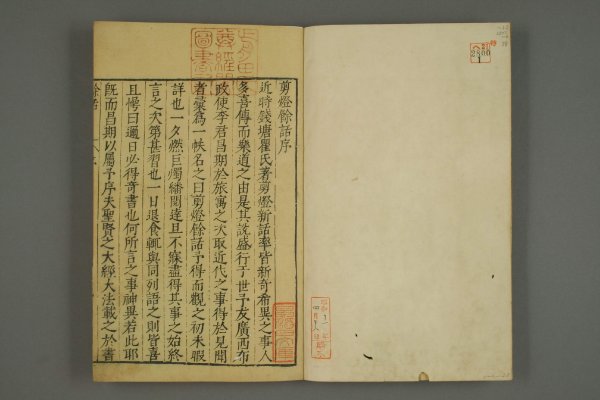 剪燈餘話序
近時錢塘瞿氏著剪燈新話率皆新奇希異之事人
多喜傳而樂道之由是其說盛行于世予友廣西布
政使李君昌期於旅寓之次取近代之事得於見聞
者彙爲一帙名之曰剪燈餘話予得而觀之初未暇
詳也一夕燃巨燭繙閱達旦不寐盡得其事之始終
言之次第甚習也一日退食輒與同列語之則皆喜
且愕曰邇日必得奇書也何所言之事神異若此耶
旣而昌期以屬予序夫聖賢之大經大法載之於書
餘話
圖書
2800
1